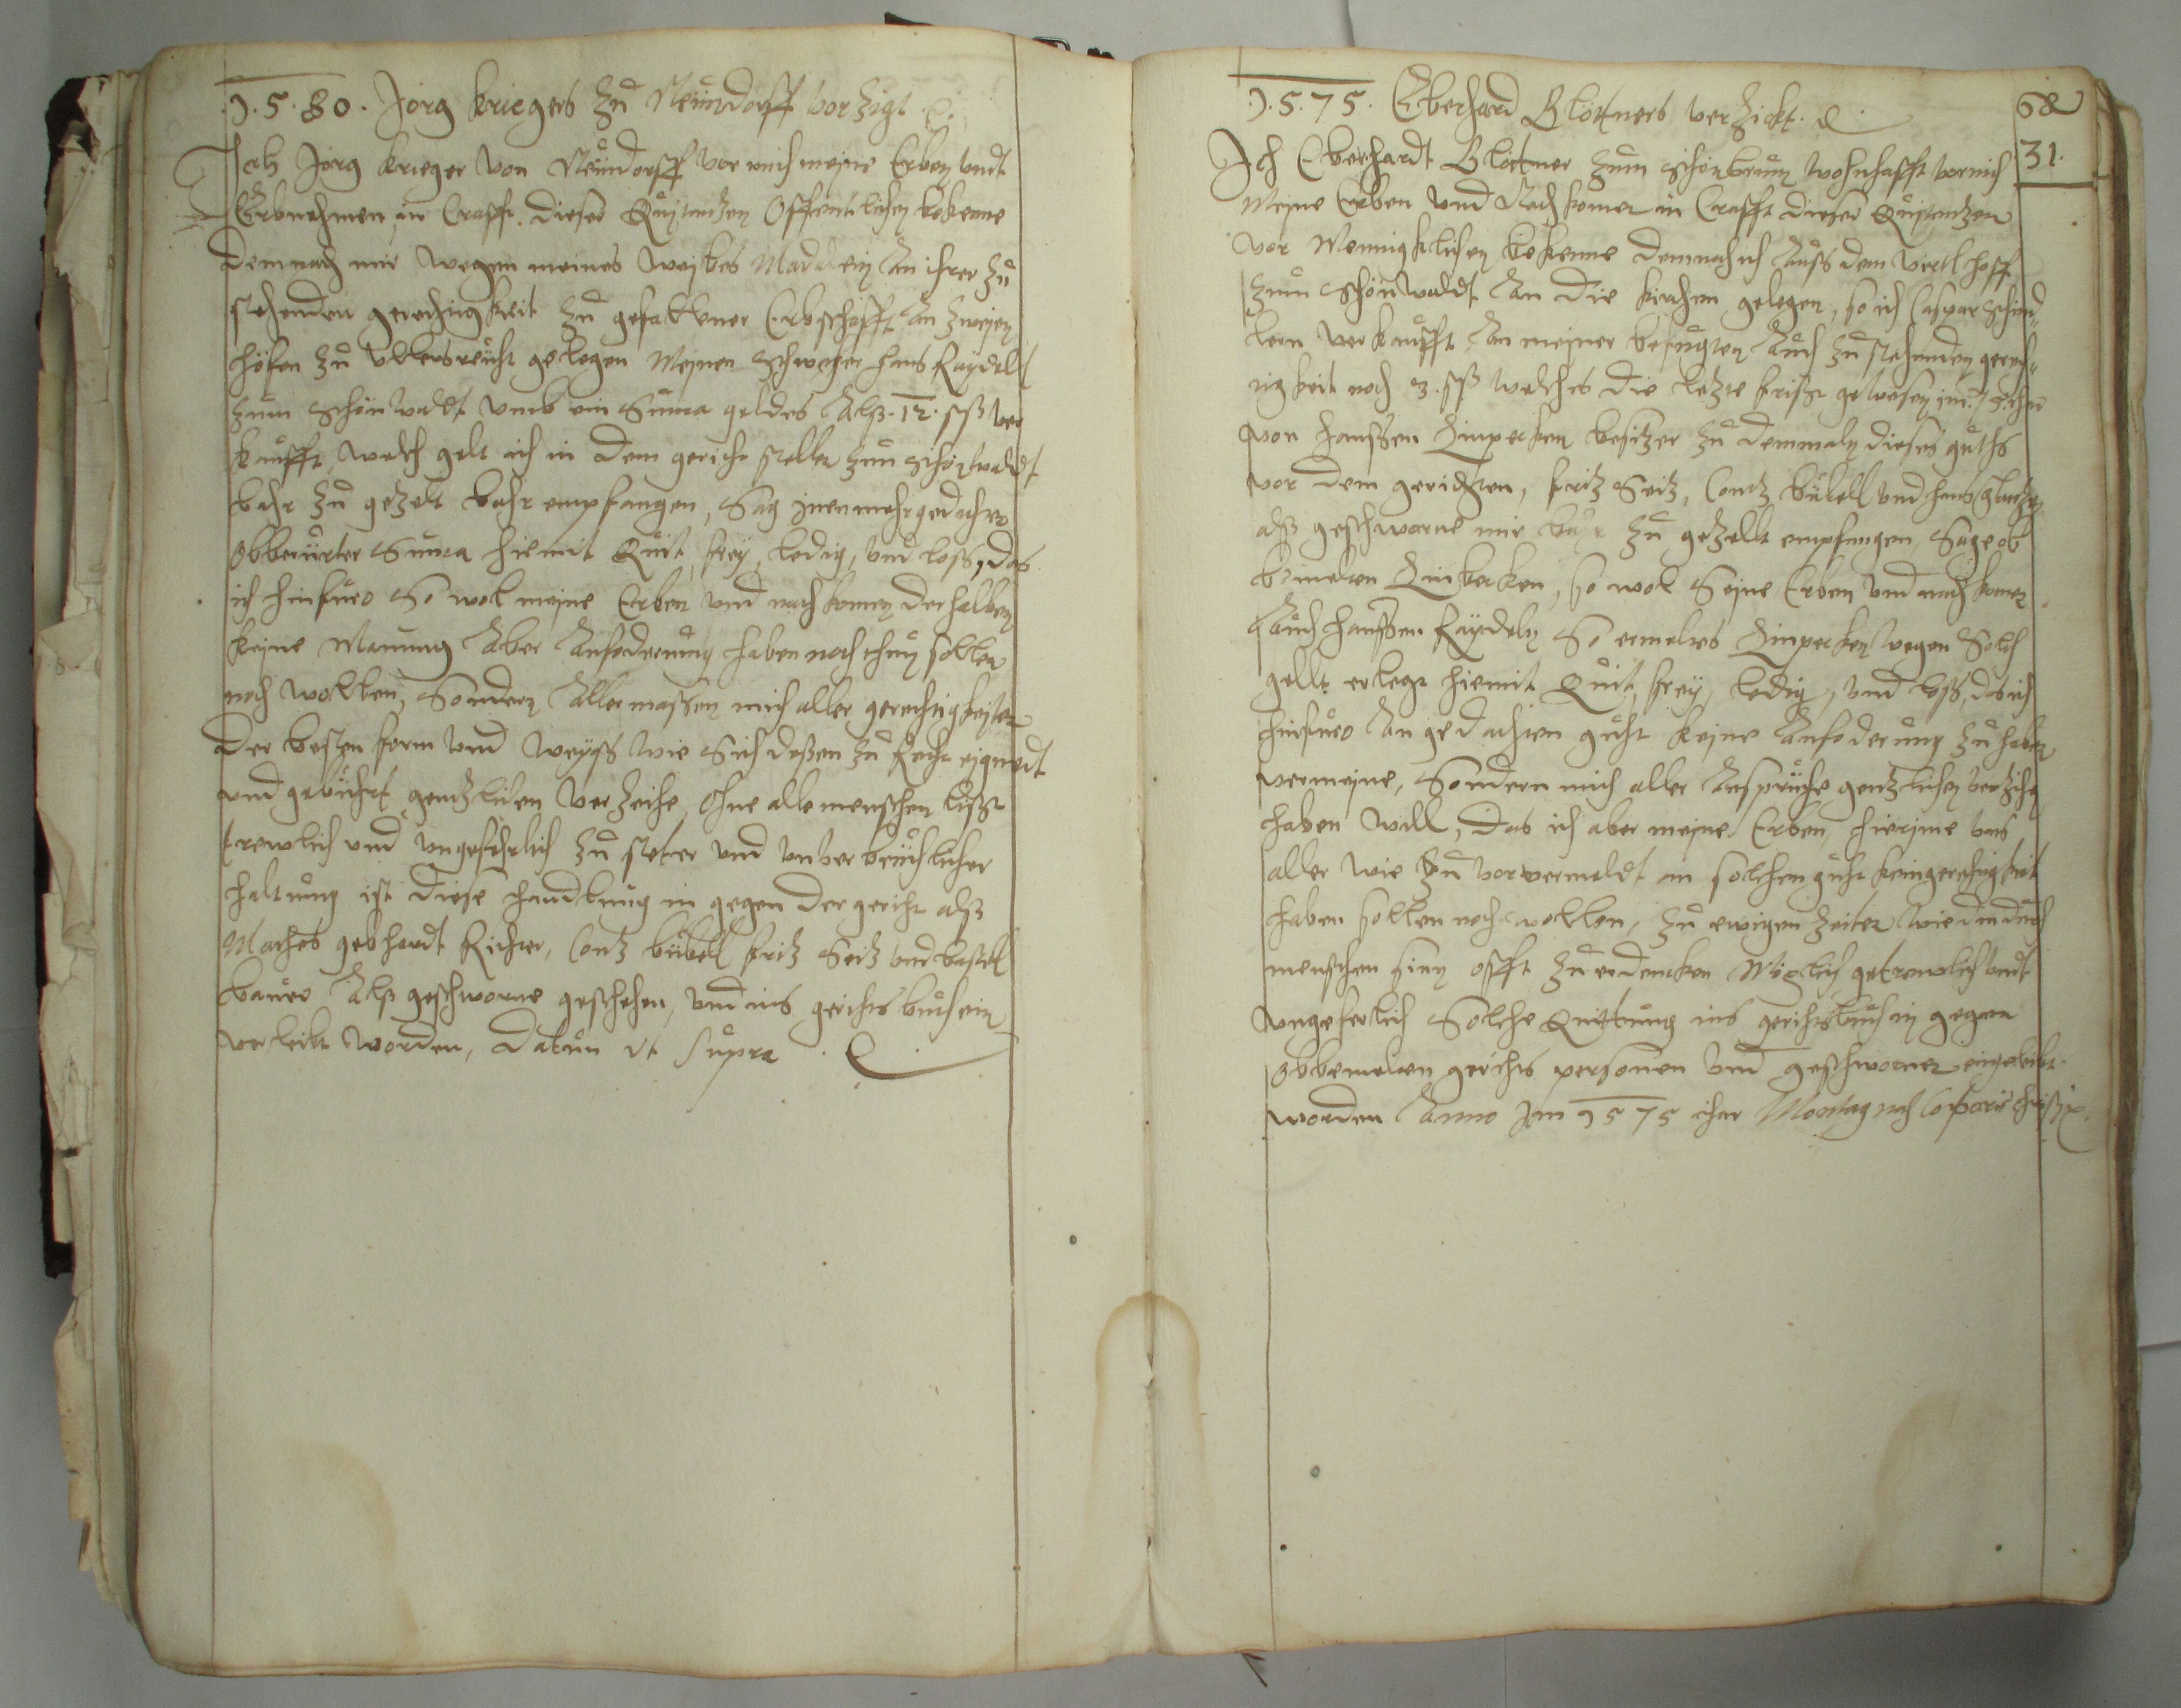 1.5.80. Jorg Kriegers zu Neundorff vorzigt.
Ich Jorg Krieger von Neundorff vor mich meine Erben undt
Erbnehmen, in Crafft dieser Quitantzen Offentlichen bekenne
demnach mir wegen meines Weibes Madalein An ihrer zu
stehenden gerechtigkeit zu gefallener Erbschafft An zweyen
höfen zu Ullersreüht gelegen Meinen Schweher Hans Raydell
zum Schönwaldt umb ein Suma geldes Alß .12. ßß ver
kaufft, welch gelt ich in dem gericht stellen zum Schönwaldt
bahr zu gezelt bahr empfangen, Sag inen mehrgedachter
obberürter Suma hiemit Quit, frey, ledig, und loß, das
ich hinfuro So wol meine Erben und nachkomen derhalben
keine Manung Aber Anfoderung haben noch thun sollen
noch wollen, Sondern Allermaßen mich aller gerechtigkeiten
der besten form und weyß wie Sich deßen zu Recht eignedt
und gebührt, gentzlichen verzeihe, ohne alle menschen list
trewlich und ungefehrlich zu steter und unverbrüchlicher
haltung ist diese handlung in gegen der gericht alß
Mathes gebhardt Richter, Contz bübell fritz Seitz und bastel
baurn Alß geschworne geschehen, und ins gerichts buch ein
verleibt worden, Datum ut supra
1.5.75. Eberhard Blöttners verzickt.
68
31.
Ich Eberhardt Blöttner zum Schönbrunn wohnhafft vor mich
Meine Erben und Nachkomen in Crafft dieser Quitantzen
vor Mennigklichen bekenne demnach ich Auß dem virtl hoff
zum Schönwaldt An die kirchen gelegen, so ich Caspar Schind=
lern verkaufft, An meiner befugten Auch zu stehenden gerech=
tigkeit noch 3. ßß welches die letzte frist gewesen
von Hanssen besitzer zu demmaln dieses guths
vor dem gerichten, fritz Seitz, Contz bübell und hans
alß geschworne mir bahr zu gezellt empfangen, Sage ob
bemelten so wol Seine Erben und nachkomen
Auch Hanssen Raydeln So ermeltes wegen Solch
gellt erlegt hiemit Quit, frey, ledig, und loß, das ich
hinfuro An gedachten guht keine Anfoderung zu haben
vermeine, Sondern mich aller Ansprüche gentzlichen verzihen
haben will, das ich aber meine Erben, hierinne uns
aller wie zu vor vermeldt an solchen guht kein gerechtigkeit
haben sollen noch wollen, zu ewigen zeiten wie dan durch
menschen sinn offt zu erdencken Möglich getrewlich undt
ungeferlich Solche Quittung ins gerichtsbuch in gegen
obbemelten gerichts personen und geschwornen eingeleibt
worden Anno Im 1575 ihar Montag nach Corporis Christi